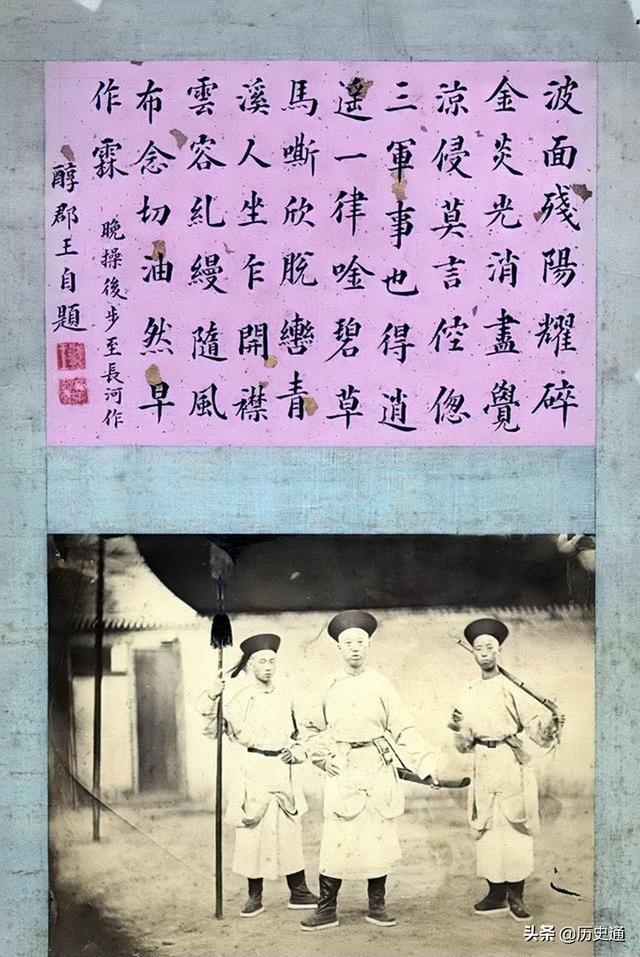 波面殘陽耀碎
金炎光消盡覺
涼侵莫言倥偬
三軍事也得逍
遙一律唫碧草
馬嘶欣脫轡青
溪人坐乍開襟
雲容糺縵隨風
布念切油然早
作霖
晚操後步至長河作
醇郡王自題
头条 @历史通